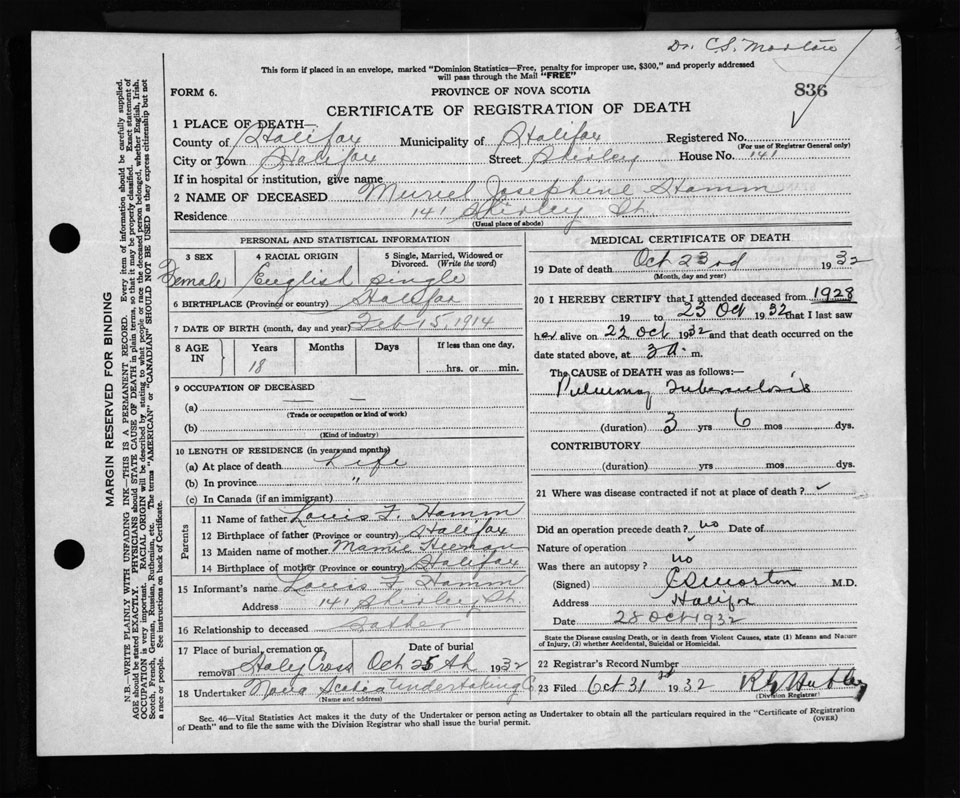 Dr. C.S. Morton
This form if placed in an envelope, marked "Dominion Statistics—Free, penalty for improper use, $300," and properly addressed
will pass through the Mail "FREE"
FORM 6. PROVINCE OF NOVA SCOTIA 836
CERTIFICATE OF REGISTRATION OF DEATH
1 PLACE OF DEATH—
County of Halifax Municipality of Halifax Registered No.
(For use of Registrar General only)
City or Town Halifax Street Shirley House No. 141
If in hospital or institution, give name
2 NAME OF DECEASED Muriel Josephine Hamm
Residence 141 Shirley St.
(Usual place of abode)
PERSONAL AND STATISTICAL INFORMATION
3 SEX 4 RACIAL ORIGIN 5 Single, Married, Widowed or
Divorced. (Write the word)
Female English Single
6 BIRTHPLACE (Province or country) Halifax
7 DATE OF BIRTH (month, day and year) Feb 15, 1914
8 AGE IN Years Months Days If less than one day,
18 hrs. or min.
9 OCCUPATION OF DECEASED
(a) — —
(Trade or occupation or kind of work)
(b)
(Kind of industry)
10 LENGTH OF RESIDENCE (in years and months)
(a) At place of death Life
(b) In province "
(c) In Canada (if an immigrant)
Parents
11 Name of father Louis F. Hamm
12 Birthplace of father (Province or country) Halifax
13 Maiden name of mother Mamie
14 Birthplace of mother (Province or country) Halifax
15 Informant's name Louis F Hamm
Address 141 Shirley St.
16 Relationship to deceased Father
17 Place of burial, cremation or removal Date of burial
Holy Cross Oct 25th 1932
18 Undertaker Nova Scotia Undertaking Co
(Name and address)
MEDICAL CERTIFICATE OF DEATH
19 Date of death Oct 23rd 1932
(Month, day and year)
20 I HEREBY CERTIFY that I attended deceased from 1928
19 to 23 Oct 1932 that I last saw
her alive on 22 Oct 1932 and that death occurred on the
date stated above, at 3 a. m.
The CAUSE of DEATH was as follows:—
Pulmonary Tuberculosis
(duration) 3 yrs 6 mos dys.
CONTRIBUTORY
(duration) yrs. mos. dys.
21 Where was disease contracted if not at place of death?
Did an operation precede death? no Date of
Nature of operation
Was there an autopsy? no
(Signed) CS Morton M.D.
Address Halifax
Date 28 Oct 1932
State the Disease causing Death, or in death from Violent Causes, state (1) Means and Nature
of Injury, (2) whether Accidental, Suicidal or Homicidal.
22 Registrar's Record Number
23 Filed Oct 31st 1932
(Division Registrar)
Sec. 46—Vital Statistics Act makes it the duty of the Undertaker or person acting as Undertaker to obtain all the particulars required in the "Certificate of Registration
of Death" and to file the same with the Division Registrar who shall issue the burial permit. (OVER)
MARGIN RESERVED FOR BINDING
N.B.—WRITE PLAINLY WITH UNFADING INK—THIS IS A PERMANENT RECORD. Every item of information should be carefully supplied.
AGE should be stated EXACTLY. PHYSICIANS should STATE CAUSE OF DEATH in plain terms, so that it may be properly classified. Exact statement of
OCCUPATION is very important. RACIAL ORIGIN will be described by stating to what people or race the deceased person belonged, whether English, Irish,
Scotch, French, German, Russian, Ruthenian, etc. The terms "AMERICAN" or "CANADIAN" SHOULD NOT BE USED as they express citizenship but not
a race or people. See instructions on back of Certificate.